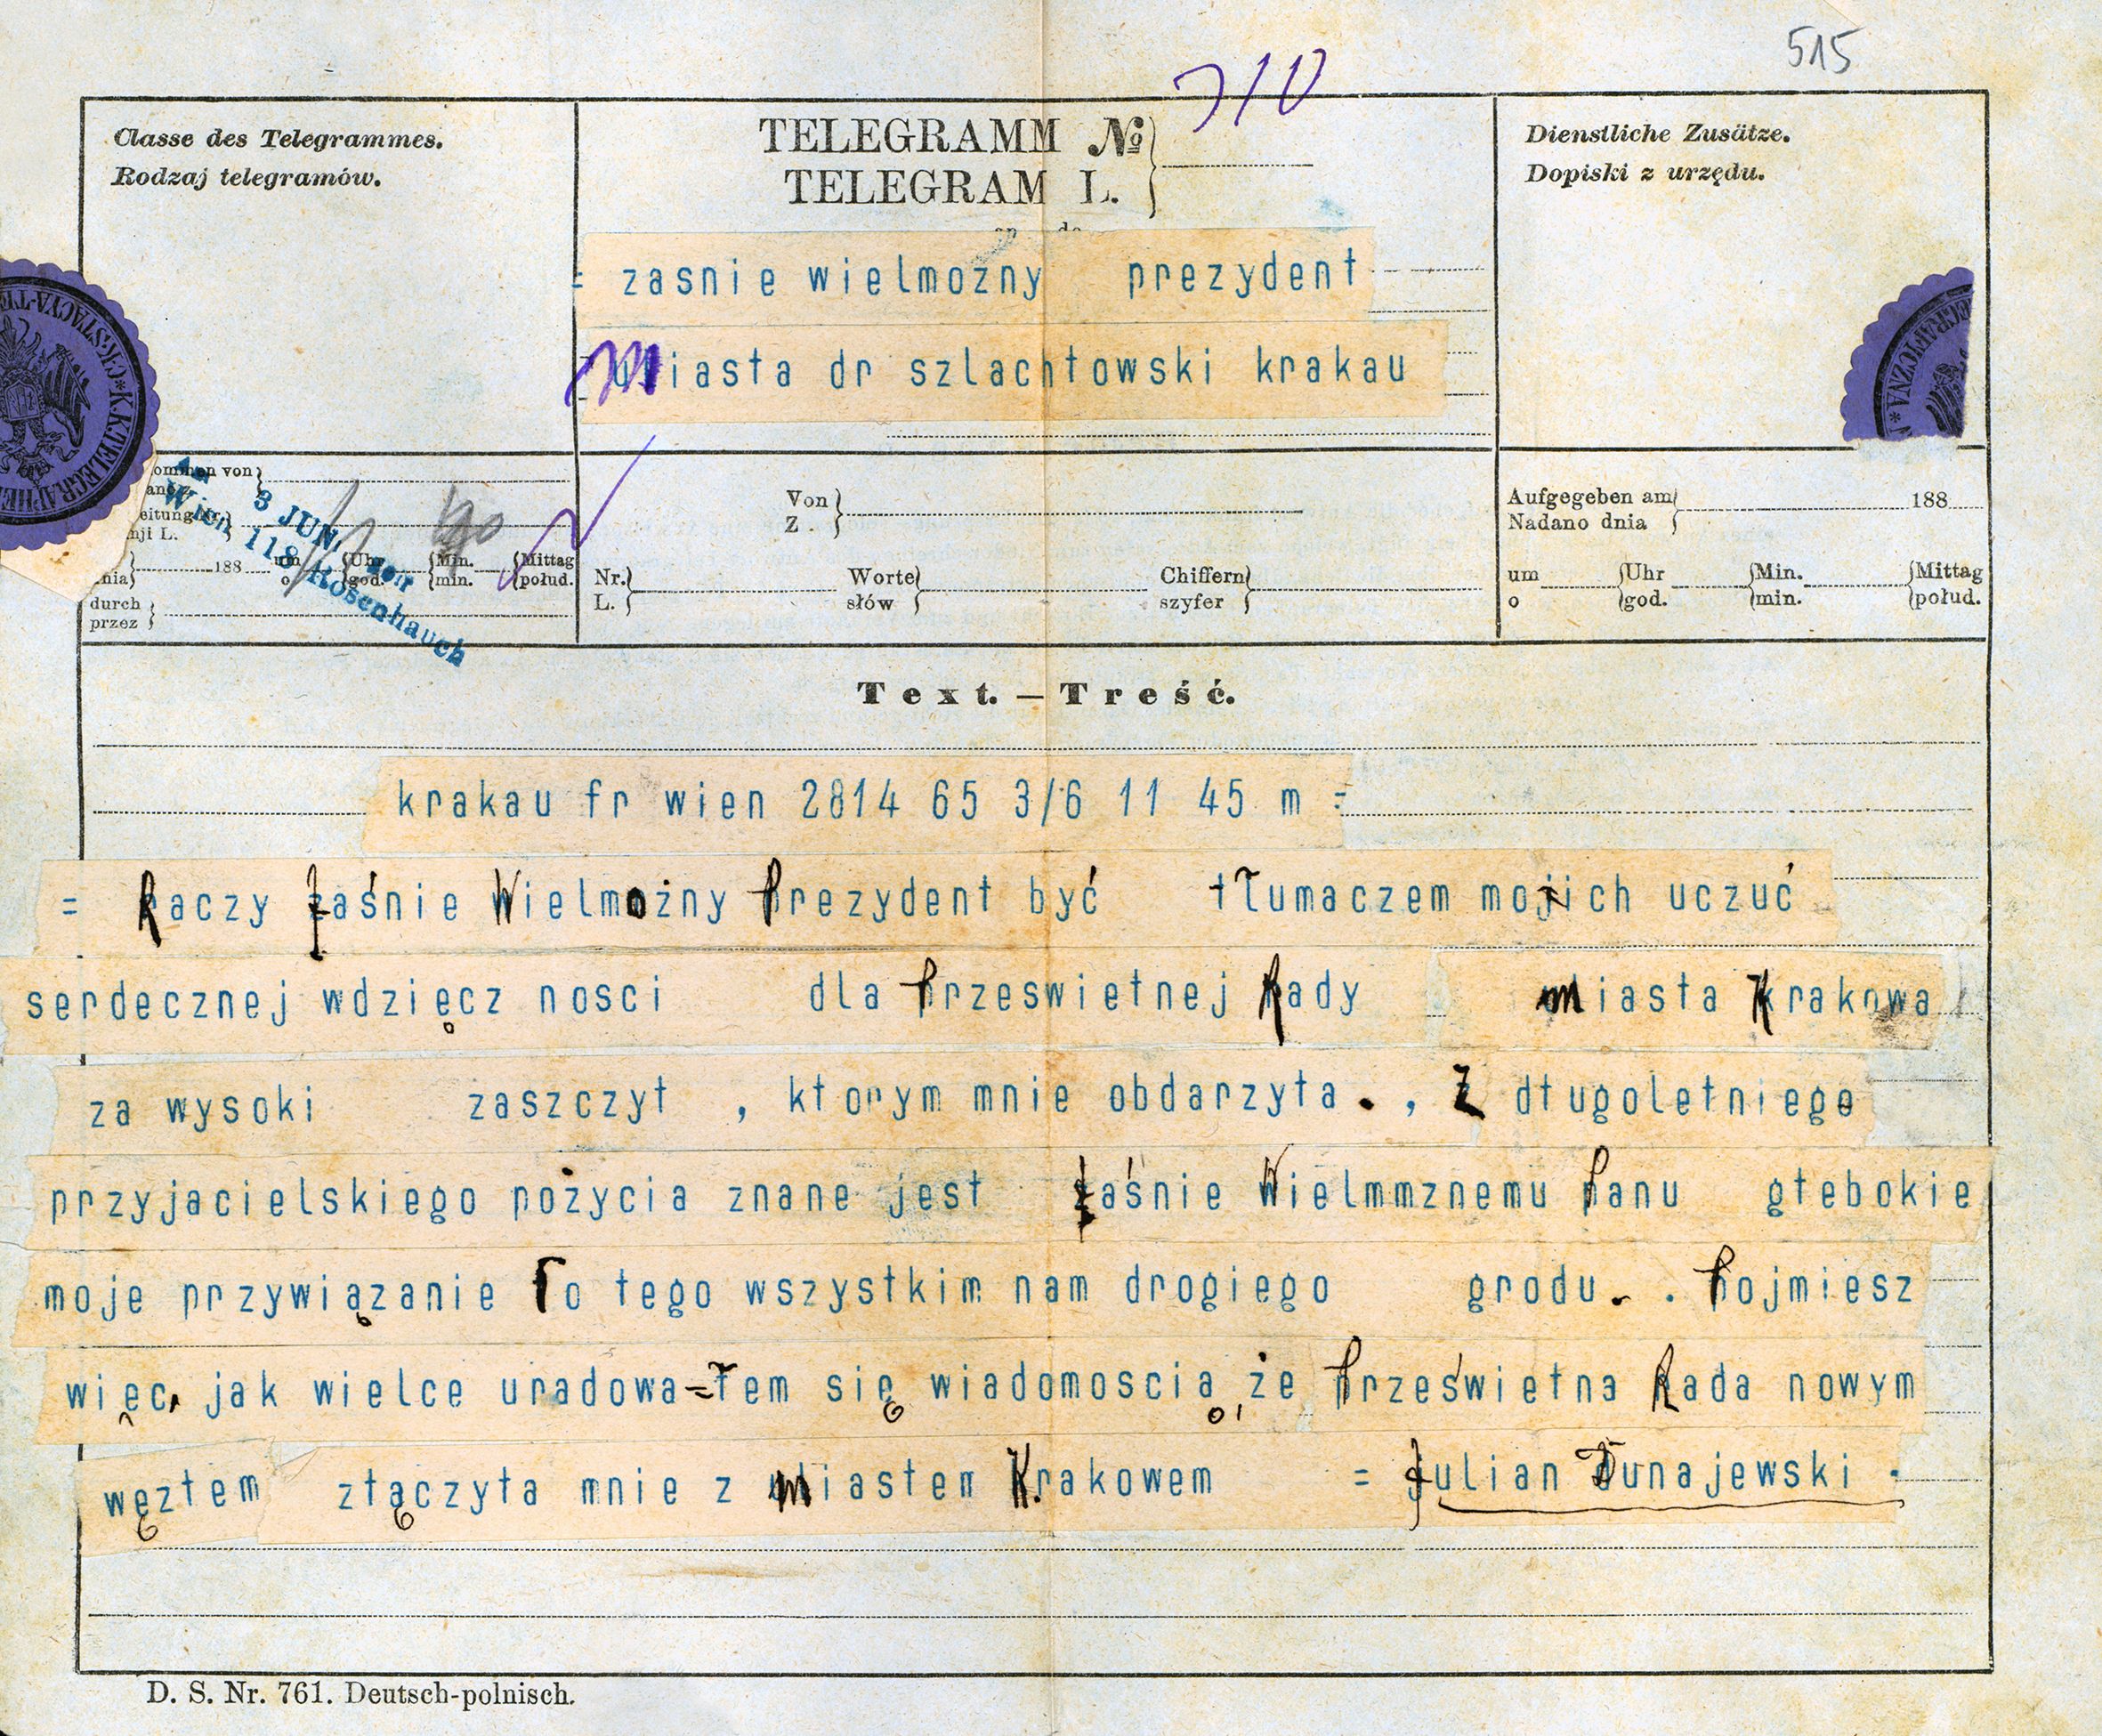 515
710
Classe des Telegrammes.
Rodzaj telegramów.
TELEGRAMM No
TELEGRAM L.
Dienstliche Zusätze.
Dopiski z urzędu.
= zasnie wielmozny prezydent
Miasta dr szlachtowski krakau
ommen von
eitung Nr.
nji L.
3 JUN.
Wien 118 Rosenhauch
188 um Uhr Min. Mittag
nia o god. min. połud.
durch
przez
Von
Z
Nr. Worte Chiffern
L. słów szyfer
Aufgegeben am 188
Nadano dnia
um Uhr Min. Mittag
o god. min. połud.
Text. — Treść.
krakau fr wien 2814 65 3/6 11 45 m =
= Raczy Jaśnie Wielmożny Prezydent być tłumaczem mojich uczuć
serdecznej wdzięcz nosci dla Przeswietnej Rady Miasta Krakowa
za wysoki zaszczyt , ktorym mnie obdarzyta. , Z dtugoletniego
przyjacielskiego pożycia znane jest Jaśnie Wielmmznemu Panu gtebokie
moje przywiązanie To tego wszystkim nam drogiego grodu. . Pojmiesz
więc, jak wielce uradowa=łem się wiadomoscią, że Prześwietna Rada nowym
węztem ztączyta mnie z Miastem Krakowem = Julian Dunajewski -
D. S. Nr. 761. Deutsch-polnisch.